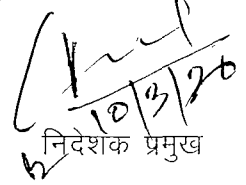 10/3/20
निदेशक प्रमुख